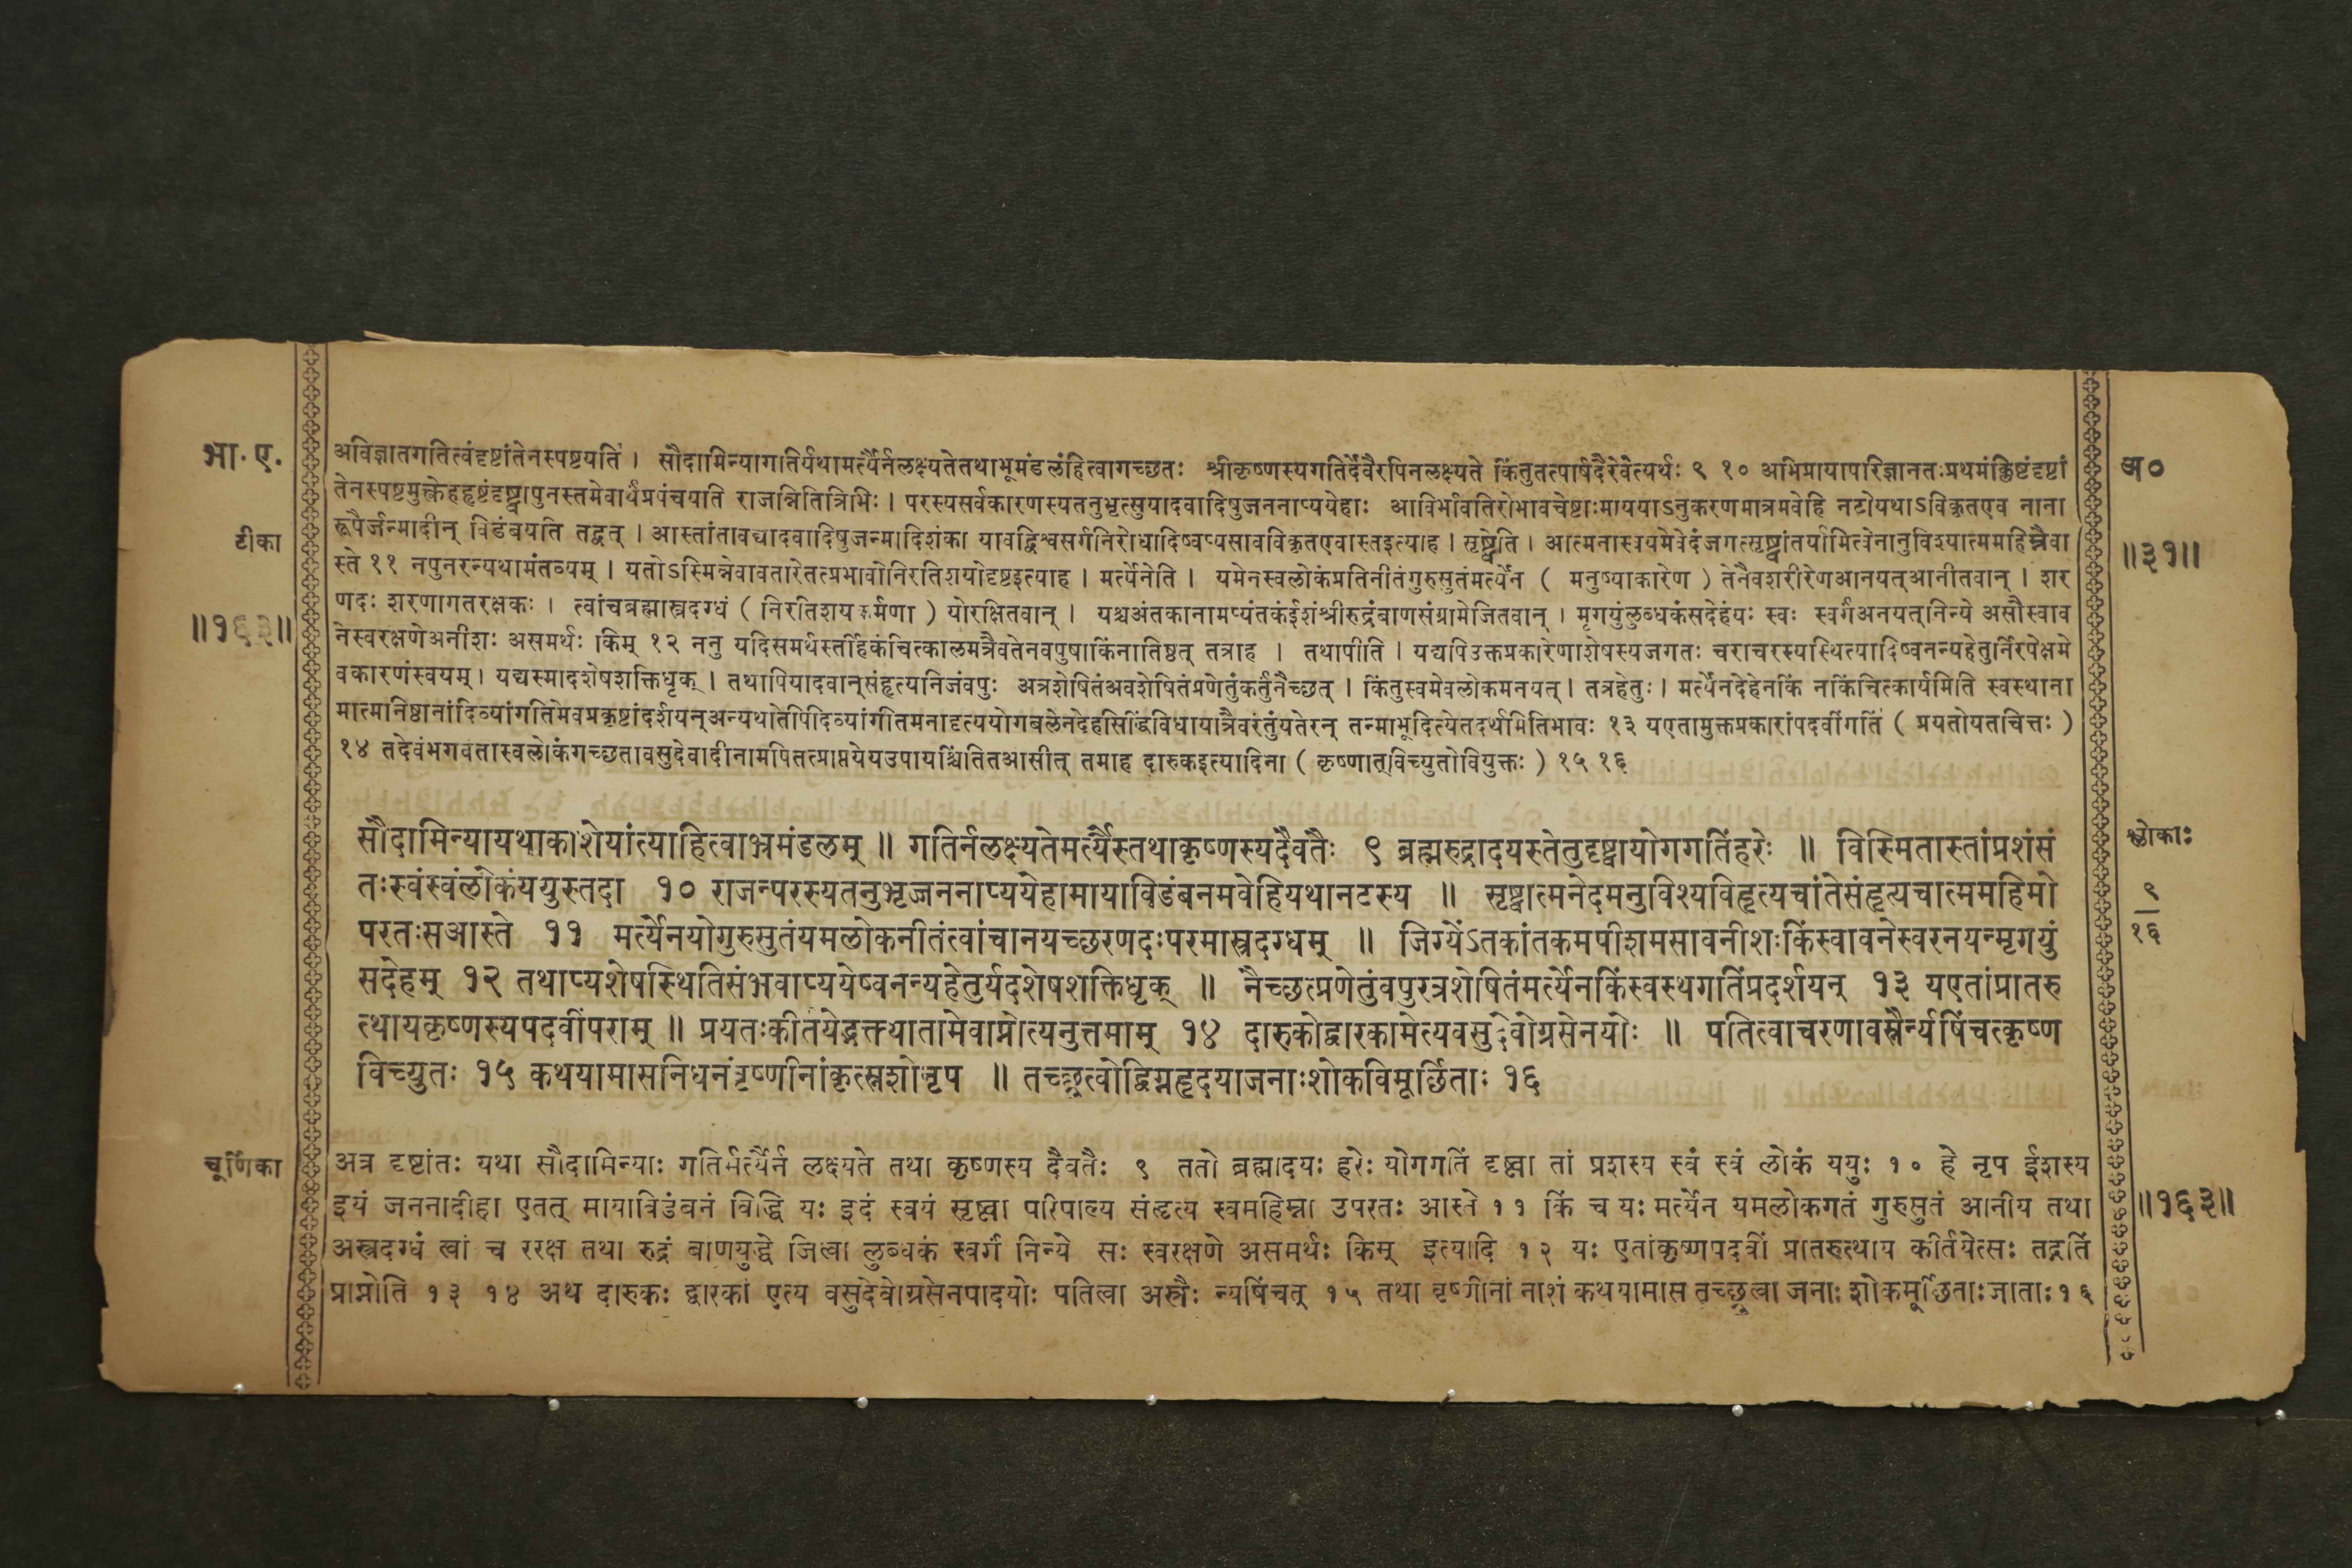 भा. ए.
टीका
॥१६३॥
अविज्ञातगतित्वंदृष्टांतेनस्पष्टयति । सौदामिन्यागतिर्यथामर्त्यैर्नलक्ष्यतेतथाभूमंडलंहित्वागच्छतः श्रीकृष्णस्यगतिर्देवैरपिनलक्ष्यते किंतुतत्पार्षदैरेवेत्यर्थः ९ १० अभिप्रायापरिज्ञानतःप्रथमंक्लिष्टंदृष्टां
तेनस्पष्टमुक्त्वेहहृष्टंदृष्ट्वापुनस्तमेवार्थंप्रपंचयति राजन्नितित्रिभिः । परस्यसर्वकारणस्यतनुभृत्सुयादवादिषुजननाप्ययेहाः आविर्भावतिरोभावचेष्टाःमाययाऽनुकरणमात्रमवेहि नटोयथाऽविकृतएव नाना
रूपैर्जन्मादीन् विडंबयति तद्वत् । आस्तांतावद्यादवादिषुजन्मादिशंका यावद्विश्वसर्गनिरोधादिष्वप्यसावविकृतएवास्तइत्याह । सृष्ट्वेति । आत्मनास्वयमेवेदंजगत्सृष्ट्वांतर्यामित्वेनानुविश्यात्ममहिम्नैवा
स्ते ११ नपुनरन्यथामंतव्यम् । यतोऽस्मिन्नेवावतारेतत्प्रभावोनिरतिशयोदृष्टइत्याह । मर्त्येनेति । यमेनस्वलोकंप्रतिनीतंगुरुसुतंमर्त्येन ( मनुष्याकारेण ) तेनैवशरीरेणआनयत्आनीतवान् । शर
णदः शरणागतरक्षकः । त्वांचब्रह्मास्त्रदग्धं ( निरतिशयकर्मणा ) योरक्षितवान् । यश्चअंतकानामप्यंतकंईशंश्रीरुद्रंबाणसंग्रामेजितवान् । मृगयुंलुब्धकंसदेहंयः स्वः स्वर्गंअनयत्निन्ये असौस्वाव
नेस्वरक्षणेअनीशः असमर्थः किम् १२ ननु यदिसमर्थस्तर्हिकंचित्कालमत्रैवतेनवपुषाकिंनातिष्ठत् तत्राह । तथापीति । यद्यपिउक्तप्रकारेणाशेषस्यजगतः चराचरस्यस्थित्यादिष्वनन्यहेतुर्निरपेक्षमे
वकारणंस्वयम् । यद्यस्मादशेषशक्तिधृक् । तथापियादवान्संहृत्यनिजंवपुः अत्रशेषितंअवशेषितंप्रणेतुंकर्तुंनैच्छत् । किंतुस्वमेवलोकमनयत् । तत्रहेतुः । मर्त्येनदेहेनकिं नकिंचित्कार्यमिति स्वस्थाना
मात्मनिष्ठानांदिव्यांगतिमेवप्रकृष्टांदर्शयन्अन्यथातेपिदिव्यांगतिमनादृत्ययोगबलेनदेहसिद्धिंविधायात्रैवरंतुंयतेरन् तन्माभूदित्येतदर्थमितिभावः १३ यएतामुक्तप्रकारांपदवींगतिं ( प्रयतोयतचित्तः )
१४ तदेवंभगवतास्वलोकंगच्छतावसुदेवादीनामपितत्प्राप्तयेयउपायश्चिंतितआसीत् तमाह दारुकइत्यादिना ( कृष्णात्विच्युतोवियुक्तः ) १५ १६
अ०
॥३१॥
सौदामिन्यायथाकाशेयांत्याहित्वाभ्रमंडलम् ॥ गतिर्नलक्ष्यतेमर्त्यैस्तथाकृष्णस्यदैवतैः ९ ब्रह्मरुद्रादयस्तेतुदृष्ट्वायोगगतिंहरेः ॥ विस्मितास्तांप्रशंसं
तःस्वंस्वंलोकंययुस्तदा १० राजन्परस्यतनुभृज्जननाप्ययेहामायाविडंबनमवेहियथानटस्य ॥ सृष्ट्वात्मनेदमनुविश्यविहृत्यचांतेसंहृत्यचात्ममहिमो
परतःसआस्ते ११ मर्त्येनयोगुरुसुतंयमलोकनीतंत्वांचानयच्छरणदःपरमास्त्रदग्धम् ॥ जिग्येंऽतकांतकमपीशमसावनीशःकिंस्वावनेस्वरनयन्मृगयुं
सदेहम् १२ तथाप्यशेषस्थितिसंभवाप्ययेष्वनन्यहेतुर्यदशेषशक्तिधृक् ॥ नैच्छत्प्रणेतुंवपुरत्रशेषितंमर्त्येनकिंस्वस्थगतिंप्रदर्शयन् १३ यएतांप्रातरु
त्थायकृष्णस्यपदवींपराम् ॥ प्रयतःकीर्तयेद्भक्त्यातामेवाप्नोत्यनुत्तमाम् १४ दारुकोद्वारकामेत्यवसुदेवोग्रसेनयोः ॥ पतित्वाचरणावस्त्रैर्न्यषिंचत्कृष्ण
विच्युतः १५ कथयामासनिधनंवृष्णीनांकृत्स्नशोनृप ॥ तच्छ्रुत्वोद्विग्नहृदयाजनाःशोकविमूर्छिताः १६
श्लोकाः
९
१६
चूर्णिका
अत्र दृष्टांतः यथा सौदामिन्याः गतिर्मर्त्यैर्न लक्ष्यते तथा कृष्णस्य दैवतैः ९ ततो ब्रह्मादयः हरेः योगगतिं दृष्ट्वा तां प्रशस्य स्वं स्वं लोकं ययुः १० हे नृप ईशस्य
इयं जननादीहा एतत् मायाविडंबनं विद्धि यः इदं स्वयं सृष्ट्वा परिपाल्य संहृत्य स्वमहिम्ना उपरतः आस्ते ११ किं च यः मर्त्येन यमलोकगतं गुरुसुतं आनीय तथा
अस्त्रदग्धं त्वां च ररक्ष तथा रुद्रं बाणयुद्धे जित्वा लुब्धकं स्वर्गं निन्ये सः स्वरक्षणे असमर्थः किम् इत्यादि १२ यः एतांकृष्णपदवीं प्रातरुत्थाय कीर्तयेत्सः तद्गतिं
प्राप्नोति १३ १४ अथ दारुकः द्वारकां एत्य वसुदेवोग्रसेनपादयोः पतित्वा अस्त्रैः न्यषिंचत् १५ तथा वृष्णीनां नाशं कथयामास तच्छ्रुत्वा जनाः शोकमूर्छिताःजाताः १६
॥१६३॥